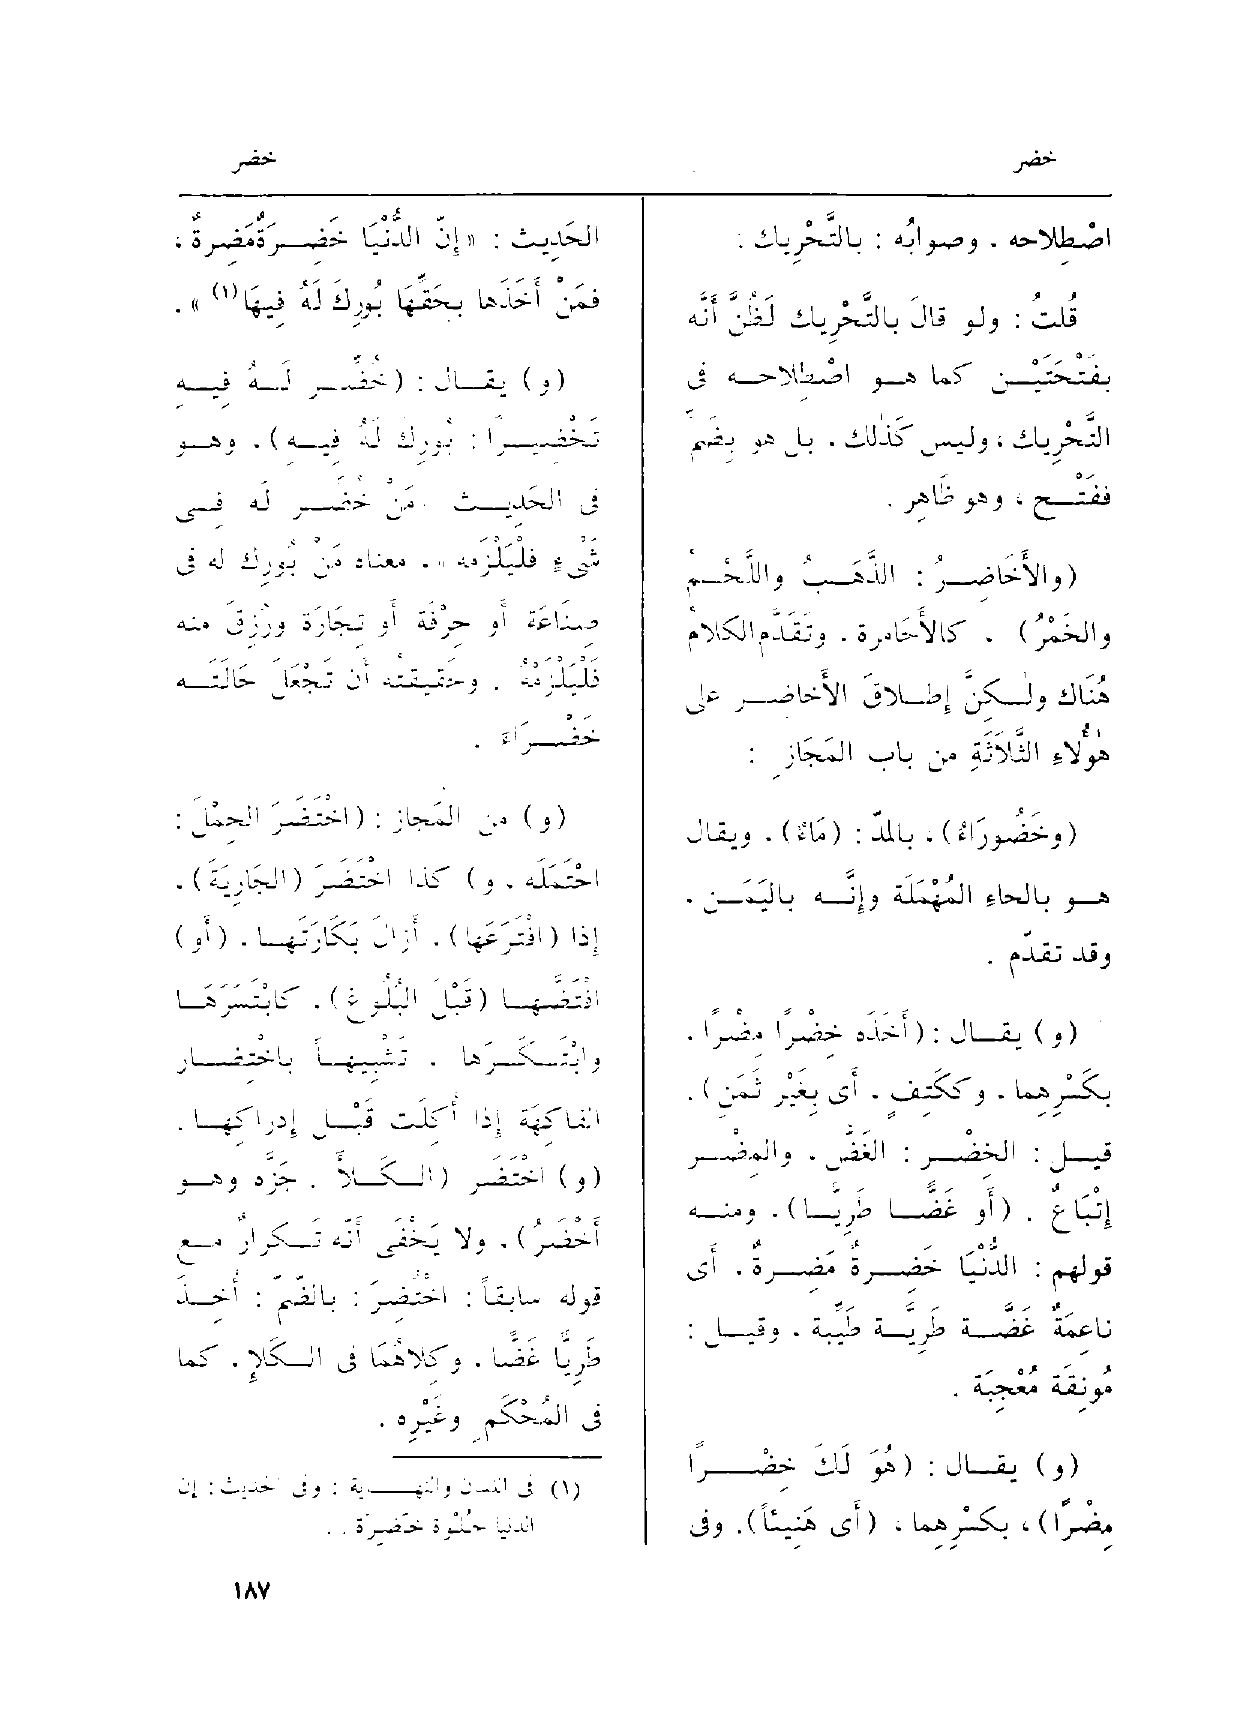 خضر
خضر
اصْطِلاحه . وصوابُه : بالتَّحْرِيك :
قُلتُ : ولو قالَ بالتَّحْرِيك لَظُنَّ أَنَّه
بفَتْحَتَيْــن كما هــو اصْطِلاحــه فى
التَّحْرِيك ، وليس كَذٰلك . بل هو بِضَمّ
ففَتْــح ، وهو ظَاهر .
(والأَخَاضِــرُ : الذَّهَــبُ واللَّحْــم
والخَمْرُ) . كالأَحَامرة . وتَقَدَّم الكلامُ
هُنَاك ولٰــكنَّ إِطــلاقَ الأَخاضــر على
هٰؤُلاءِ الثَّلَاثَةِ من باب المَجَازِ :
(وخَضُورَاءُ) ، بالمدّ : (مَاءٌ) . ويقال
هــو بالحاءِ المُهْمَلَة وإِنَّــه باليَمَــن .
وقد تقدّم .
(و) يقــال : (أَخَذَه خِضْرًا مِضْرًا .
بكَسْرِهما . وككَتِف . أَى بغَيْرِ ثَمَنٍ) .
قيــل : الخِضْــر : الغَضّ . والمِضْــر
إِتْبَاعٌ . (أَو غَضًّــا طَرِيًّــا) . ومنــه
قولهم : الدُّنْيَا خَضِــرةٌ مَضِــرةٌ . أَى
ناعِمَةٌ غَضّــة طَرِيَّــة طَيِّبة . وقيــل :
مُونِقَة مُعْجِبَة .
(و) يقــال : (هُوَ لَكَ خِضْــرًا
مِضْرًا) ، بكَسْرِهما ، (أَى هَنِيئاً) . وفى
الحَدِيث : « إِنّ الدُّنْيَا خَضِــرَةٌ مَضِرةٌ ،
فمَنْ أَخَذَها بحَقِّهَا بُورِك لَهُ فِيهَا(١) » .
(و) يقــال : (خُضِّــر لَــهُ فِيــه
تَخْضِيــرًا : بُورِك لَهُ فِيــه) . وهــو
فى الحَدِيــث مَنْ خُضِّــر لَه فِــى
شَىْءٍ فَلْيَلْزَمه » . معناه مَنْ بُورِك له فى
صِنَاعَة أَو حِرْفَة أَو تِجَارَة ورُزِقَ منه
فَلْيَلْزَمْهُ . وحَقِيقَتُه أَن تُجْعَلَ حَالَتُــه
خَضْــرَاءَ .
(و) من المَجاز : (اخْتَضَرَ الحِمْلَ :
احْتَمَلَه . و) كذا اخْتَضَرَ (الجَارِيَةَ) .
إِذا (افْتَرَعَها) . أَزالَ بَكَارَتَهــا . (أَو)
اقْتَضَّهــا (قَبْلَ البُلُوغِ) . كابْتَسَرَهَــا
وابْتَــكَــرَها . تَشْبِيهــاً باخْتِضــار
الفاكِهَة إِذا أُكِلَت قَبْــل إِدراكِهــا .
(و) اخْتَضَر (الــكَــلأَ . جَزَّه وهــو
أَخْضَرُ) . ولا يَخْفَى أَنّه تَــكْرارٌ مــع
قوله سابقاً : اخْتُضِرَ : بالضَّمّ : أُخِــذَ
طَرِيًّا غَضًّا . وكِلاهُمَا فى الــكَلإِ . كما
فى المُحْكَمِ وغَيْرِه .
(١) فى اللسان والنهــاية : وفى حديث : إن
الدنيا حُلْوة خَضِرَة . .
١٨٧